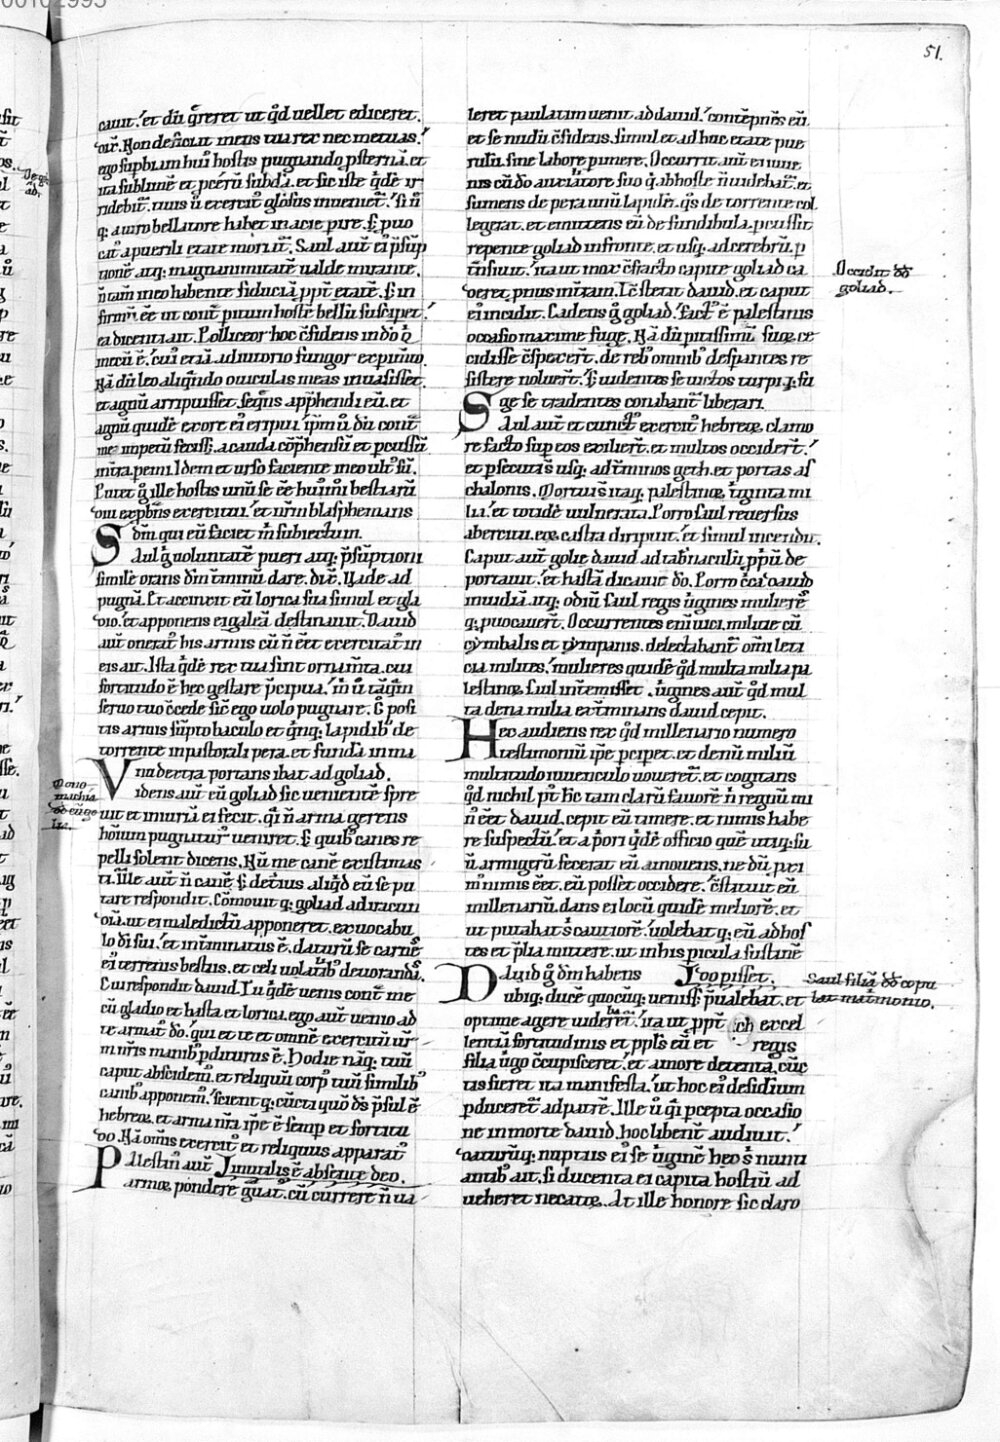 51.
cauit. et dū q̄reret ut qd̄ uellet ediceret.
dix̄. Non deficiat mens tua rex nec metuas.
ego supbiam hui' hostis pugnando p̄sternā. et
ita sublimē et pcerū subdā. et sic iste qdē ir
ridebit̄. tuus ū exercit' glosus inueniet̄. si n̄
q; a uiro bellatore habet in acie pire. s; puo
cat' a puerili etate morit̄. Saul aut̄ ei' p̄sūp
tionē atq; magnanimitatē ualde mirante.
n̄ tam̄ in eo habente fiduciā ppt̄ etatē. s; in
firmū eē ut cont̄ pitum hostē bellū suscipet.
ea dicenti ait. Polliceor hoc c̄fidens in dō q
mecū ē. cui' etiā adiutorio fungor exptimto.
Nā dū leo aliqn̄do ouiculas meas inuasisset.
et agnū arripuisset. seqn̄s app̄hendi eū. et
agnū quidē ex ore ei' eripui. ipm ū dū cont̄
me impetū fecisset. a cauda cōp̄hensū et pcussū
int̄ra pemi. Idem et urso faciente in eo ult' sū.
Putet g' ille hostis unū se eē hui'mi bestiarū
diu expbn̄s exercitui. et nr̄m blasphemans
dm̄ qui eū faciet m̄ subiectum.
Saul g' uoluntatē pueri atq; p̄sūptioni
similē orans dm̄ t̄minū dare. dix̄. Vade ad
pugnā. Et accinxit eū lorica sua simul et gla
dio. et apponens ei galeā destinauit. Dauid
aut̄ onerat' his armis cū n̄ eēt exercitat' in
eis ait. Ista qdē rex tua sint ornam̄ta. cui
fortitudo ē hec gestare p̄cipua. m̄ ū tāqm̄
seruo tuo c̄cede sic' ego uolo pugnare. Et posi
tis armis sūpto baculo et qnq; lapidib' de
torrente in pastorali pera. et funda in ma
nu dextra portans ibat ad goliad.
Videns aut̄ eū goliad sic uenientē spre
uit et iniuriā ei fecit. qi n̄ arma gerens
hominum pugnatur' ueniret. s; quib' canes re
pelli solent dicens. Nū me canē existimas
ti. Ille aut̄ n̄ canē s; det̄ius aliqd̄ eū se pu
tare respondit. Cōmouit q; goliad ad iracun
diā. ut ei maledictū apponeret. ex uocabu
lo di sui. et int̄minatus ē. daturū se carnē
ei' terrenis bestiis. et celi uolatib' deuorandā.
Cui respondit dauid. Tu qdē uenis cont̄ me
cū gladio et hasta et lorica. ego aut̄ uenio ad
te armat' dō. qui et te et omnē exercitū ur̄m
in nr̄is manib' pditurus ē. Hodie nāq; tuū
caput abscidem. et reliquū corp' tuū similib'
canib' apponem. scient q; cūcta quō ds̄ p̄sul ē
hebreoꝝ. et arma nr̄a ipe ē semp et fortitu
do. Nā oms̄ exercit' et reliquus apparat'
Palestin' aut̄ inutilis ē absente deo.
armoꝝ pondere gͣuat'. cū currere n̄ ua
leret paulatim uenit ad dauid. contēpnēs eū
et se nudū c̄fidens. simul et ad huc etate pue
rulū sine labore punire. Occurrit aut̄ ei iuue
nis cū dō auxiliatore suo q ab hoste n̄ uidebat̄. et
sumens de pera unū lapidē. q's de torrente col
legerat. et emittens eū de fundibula. pcussit
repente goliad in fronte. et usq; ad cerebrū. p
trāsiuit. ita ut mox c̄fracto capite goliad ca
deret pnus in t̄ram. Et stetit dauid. et caput
ei' incidit. Cadens g' goliad. fact' ē palestinis
occasio maxime fuge. Nā dū ptissimū suoꝝ ce
cidisse c̄spexer̄t. de reb' omnib' despantes re
sistere noluer̄t. s; uidentes se uictos turpi; fu
ge se tradentes conabant̄ liberari.
Saul aut̄ et cunct' exercit' hebreoꝝ clamo
re facto sup eos exilier̄t. et multos occider̄t.
et psecuti s̄ usq; ad t̄minos geth. et portas as
chalonis. Mortui s̄ itaq; palestinoꝝ t̄ginta mi
lia. et totidē uulnerata. Porro saul reuersus
ab exercitu. eoꝝ castra diripuit. et simul incendit.
Caput aut̄ golie dauid ad tab̄naculū ppū de
portauit. et hastā dicauit dō. Porro c̄ca dauid
inuidiā atq; odiū saul regis ūgines mulieres
q; puocauer̄t. Occurrentes eni' uici. militie cū
cymbalis et tympanis. delectabant̄ om̄i leti
cia milites. mulieres quidē qd̄ multa milia pa
lestinoꝝ saul int̄emisset. ūgines aut̄ qd̄ mul
ta dena milia ext̄minans dauid cepit.
Hec audiens rex qd̄ millenario numero
testimoniū ipe pcipet. et denū miliū
multitudo iuuenculo uoueret̄. et cogitans
qd̄ nichil pt̄ hic tam clarū fauorē n̄ regnū mi
n' eēt dauid. cepit eū timere. et nimis habe
re suspectū. et a p̄ori qdē officio quē utiq; su
ū armigerū fecerat eū amouens. ne dū pxi
m' nimis eēt. eū posset occidere. c̄stituit eū
millenariū. dans ei locū quidē meliorē. et
ut putabat s; cautiorē. uolebat q; eū ad hos
tes et plia mittere. ut in his picula sustinē
re posset.
Dauid g' dm̄ habens
ubiq; ducē quocūq; ueniss; p̄ualebat. et
optime agere uideret̄. ita ut ppt̄ excel
lentiā fortitudinis et ppls eū et regis
filia ūgo c̄cupisceret. et amore detenta. cūc
tis fieret ita manifesta. ut hoc ei' desid̄ium
pduceret̄ ad patrē. Ille ū qi pcepta occasio
ne in morte dauid. hoc libent̄ audiuit.
daturūq; nuptiis ei' se ūginē hoc s; nunti
antib' ait. si ducenta ei capita hostiū ad
ueheret necatoꝝ. At ille honore sic claro
Mono
machia
dd̄ cū go
lia.
Occidit dd̄
goliad.
Saul filiā dd̄ copu
lat matrimonio.